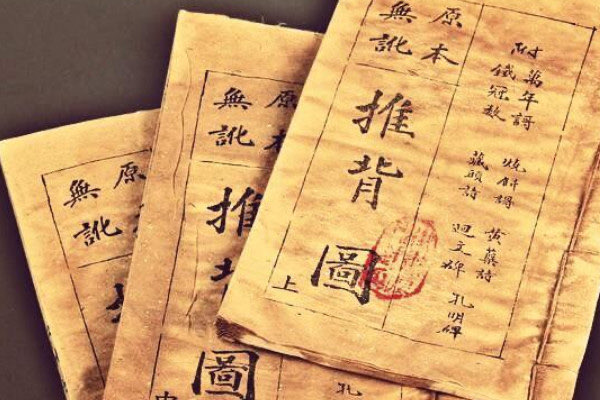 附
萬年謌 燒餅謌 黃蘗詩 孔明碑
鐵冠數 藏頭詩 迴文碑
原本
無訛
推背圖
上
原本
無訛
推背圖
中
孔
原
無訛